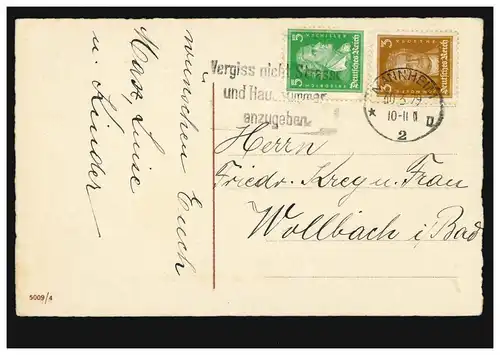 wünschen Euch
Max, Luise
u. Kinder
5 F.v.SCHILLER 5
Deutsches Reich
3 GOETHE 3
Deutsches Reich
Vergiss nicht Strasse
und Hausnummer
anzugeben
MANNHEIM
10-11
* 2 D
Herrn
Friedr. Krey u. Frau
Wollbach i/Bad
5009/4